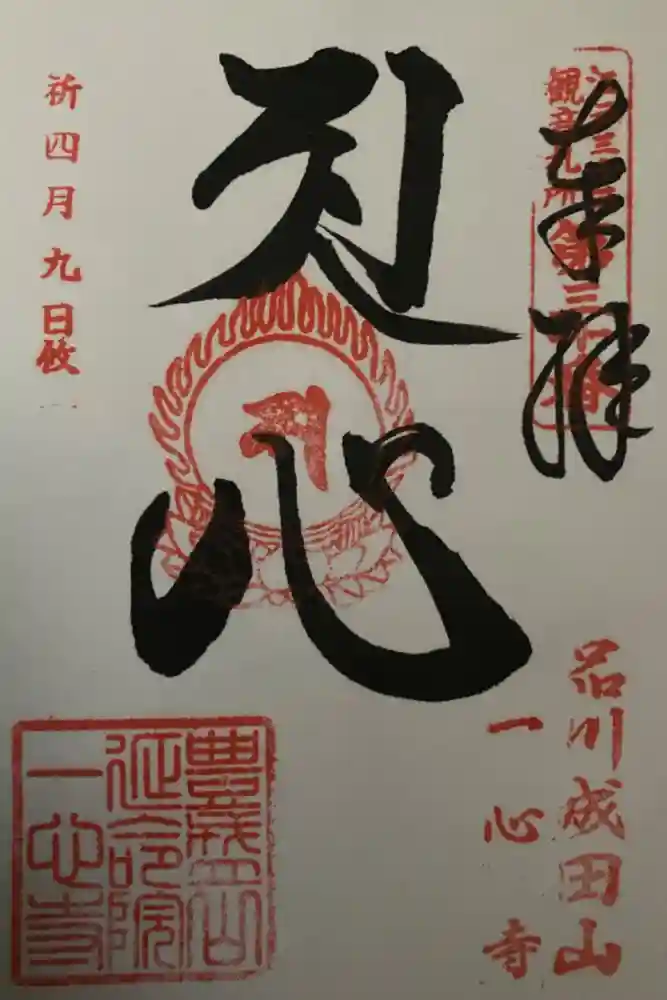 奉拝
江戸三十三
観音札所
第三十番
品川成田山
一心寺
心
祈四月九日攸
豊盛山
延命院
一心寺